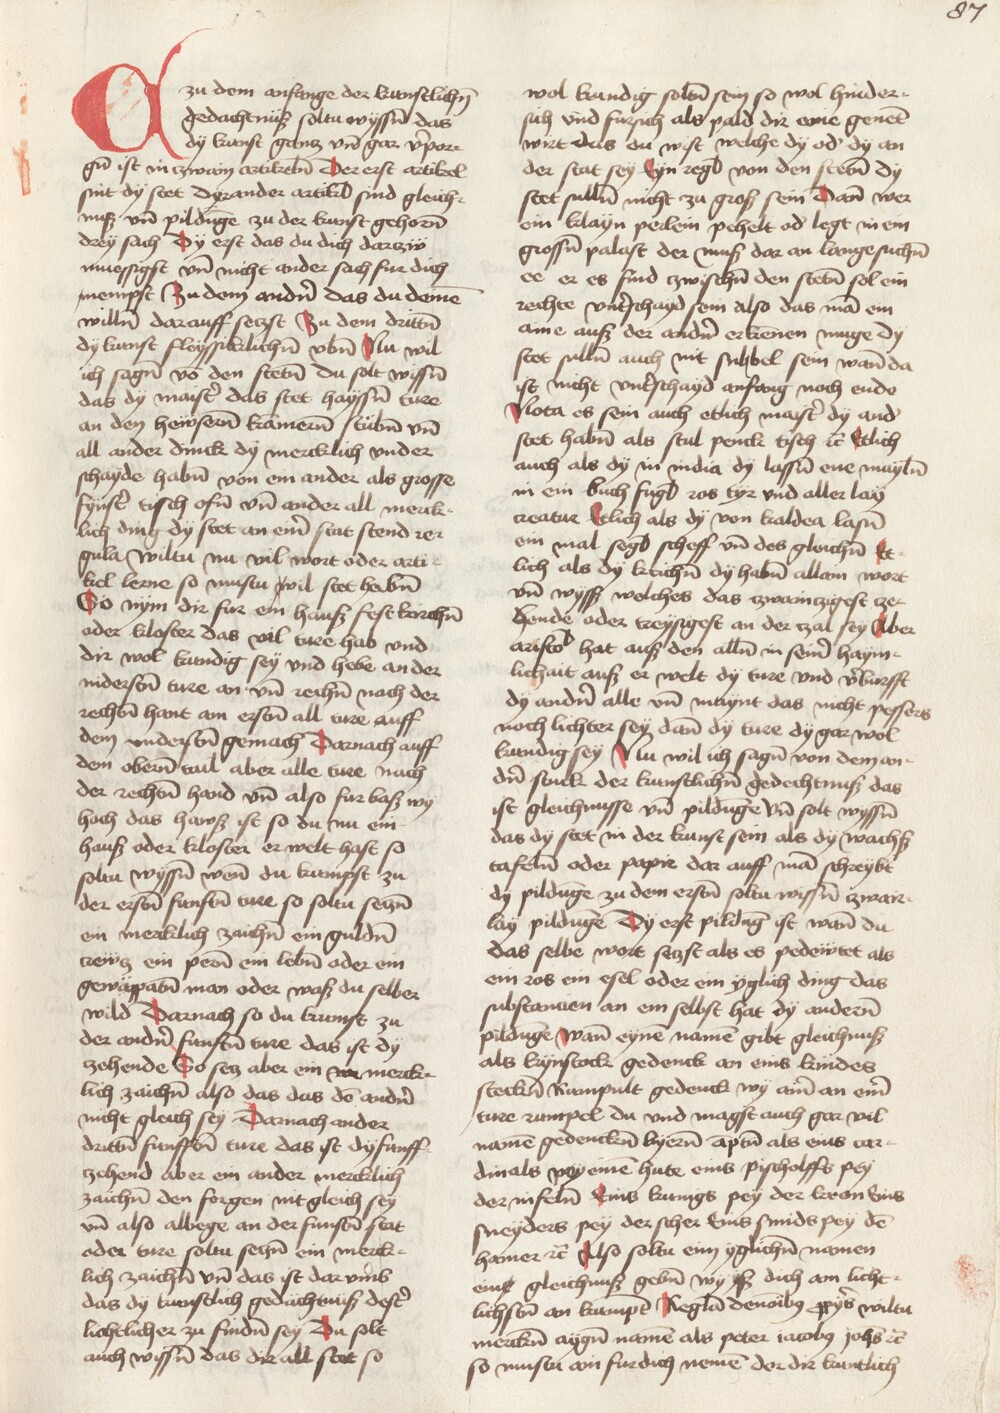 87
A zu dem anfange der kunstlichn̄
gedachtnuß soltu wyssn̄ das
dy kunst gantz vn̄ gar v̄por-
gn̄ ist in czwain artikeln̄ Der erst artikel
sint dy stet Dyr ander artikl̄ sind gleich-
nuß vn̄ pildūge zu der kunst gehorn̄
drey sach Dy erst das du dich darczw
muessigst vn̄ nicht ander sach fur dich
nempst Zu dem andn̄ das du deinē
willn̄ darauff setzst Zu dem drittn̄
dy kunst fleyssiklichn̄ vbn̄ Nu wil
ich sagn̄ vō den stetn̄ Du solt wissn̄
das dy maist̄ das stet hayssn̄ ture
an den hewsern̄ kāmern̄ stubn̄ vn̄
all ander dinck dy mercklich vnder
schayde habn̄ von ein ander als grosse
fynst̄ tisch ofn̄ vn̄ ander all merck-
lich ding dy stet an ein̄ stat stend re-
gula Wiltu nu vil wort oder arti-
kel lerne so mustu vil stet habn̄
So nym dir fur ein hauß fest kirchn̄
oder kloster das vil ture hab vnd
dir wol kundig sey vnd hebe an der
niderstn̄ ture an vn̄ rechn̄ nach der
rechtn̄ hant am erstn̄ all ture auff
dem vnderstn̄ gemach Darnach auff
dem obern̄ tail aber alle ture nach
der rechtn̄ hand vn̄ also furbaß wy
hoch das hawß ist so du nu ein
hauß oder kloster er welt hast so
soltu wyssn̄ wen̄ du kumpst zu
der erstn̄ funftn̄ ture so soltu setzn̄
ein mercklich zaichn̄ ein guldn̄
crewtz ein pern̄ ein lebn̄ oder ein
gewappatn̄ man oder waß du selber
wild Darnach so du kumst zu
der andn̄ funftn̄ ture das ist dy
zehende So setz aber ein merck-
lich zaichn̄ also das das dē andn̄
nicht gleich sey Darnach ander
drittn̄ funfftn̄ ture das ist dy funff-
zehend aber ein ander mercklich
zaichn̄ den forgen nit gleich sey
vn̄ also albege an der funftn̄ stat
oder ture soltu setzn̄ ein merck-
lich zaichn̄ vn̄ das ist dar vm̄b
das dy kunstlich gedachtnuß dest̄
lichtlicher zu findn̄ sey Du solt
auch wissn̄ das dir all stet so
wol kundig soltn̄ sein so wol hinder-
sich vnd fursich als pald dir eine genēt
wirt das du wist welche dy od̄ dy an
der stat sey Eyn regl̄ von den stetn̄ dy
stet sulln̄ nicht zu groß sein Dan̄ wer
ein klayn perlein pehelt od̄ legt in ein
grossn̄ palast der muß dar an lange suchn̄
ee er es find czwischn̄ den stetn̄ sol ein
rechte vnt̄schayd sein also das mā ein
aine auß der andn̄ erkenen muge dy
stet sulln̄ auch nit subbel sein wan̄ da
ist nicht vnt̄schayd anfang noch ende
Nota es sein auch etlich maist̄ dy and̄
stet habn̄ als stul penck tisch rc̄ Etlich
auch als dy in india dy lassn̄ ene mayln̄
in ein buch fugl̄ ros tyr vnd aller lay
creatur Etlich als dy von kaldea lasn̄
ein mal segl̄ scheff vn̄ des gleichn̄ Et-
lich als dy krichn̄ dy habn̄ allain wort
vn̄ wyss welches das czwainczigest cze-
hende oder treyssigest an der czal sey Aber
aristol̄ hat auß den alln̄ in sein̄ haym-
lichait auß er welt dy ture vnd v̄burfft
dy andn̄ alle vn̄ maynt das nicht pessers
noch lichter sey dan̄ dy ture dy gar wol
kundig sey Nu wil ich sagn̄ von dem an-
dn̄ stuck der kunstlichn̄ gedechtnuß das
ist gleichnusse vn̄ pildūge vn̄ solt wyssn̄
das dy stet in der kunst sein als dy wachß
tafeln̄ oder papir dar auff mā schreybt
dy pildūge zu dem erstn̄ soltu wissn̄ zwair-
lay pildūge Dy erst pildūg ist wan̄ du
das selbe wort setzst als es pedewtet als
ein ros ein esel oder ein yglich ding das
substancien an ein selbst hat dy andern̄
pildūge wan̄ eynē namē gibt gleichnuß
als kynstock gedenck an eins kindes
steckn̄ Rumpult gedenck wy ain̄ an ein̄
ture rumpel du vnd magst auch gar vil
namē gedenckn̄ byern̄ aptn̄ als eins car-
dinals pey einē hute eins pischolffs pey
der infeln̄ Eins kunigs pey der kron Eins
sneyders pey der scher Eins smids pey dē
hamer rc̄ Also soltu eim yglichn̄ namen
eine gleichnuß gebn̄ wy sß dich am licht-
lichstn̄ an kumpt Regl̄a de nōibꝰ ꝓpꝰ wiltu
merckn̄ aygn̄ namē als peter iacobꝰ johs̄ rc̄
so mustu ain fur dich nemē der dir kuntlich